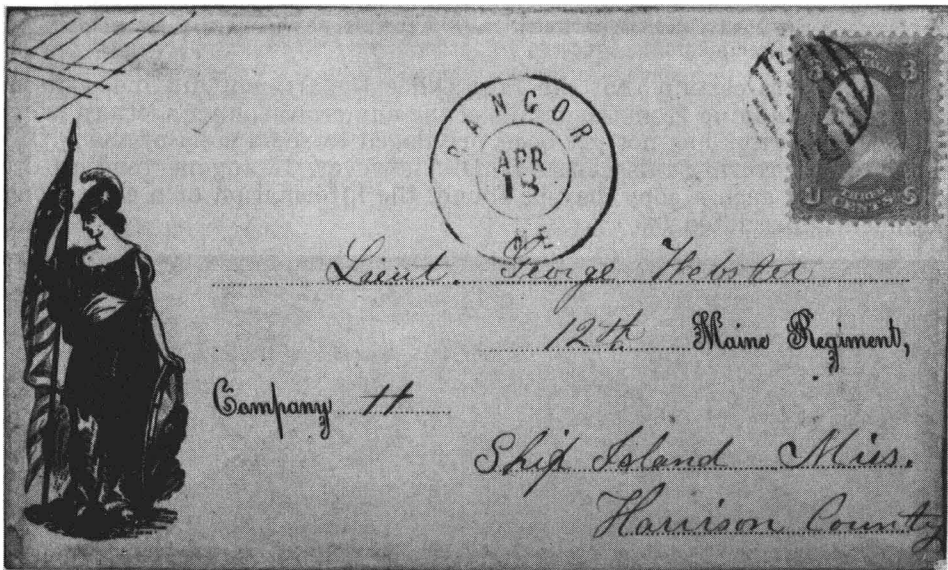 BANGOR
APR
18
ME
3 3
U S
CENTS
Lieut. George Webster
12th Maine Regiment,
Company H
Ship Island Miss.
Harrison County